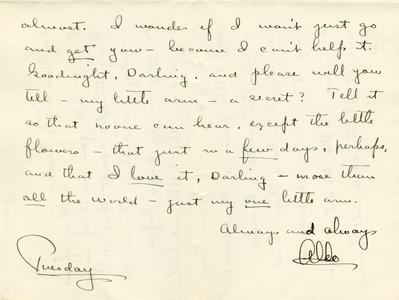 almost. I wonder if I won't just go
and get you — because I can't help it.
Goodnight, Darling, and please will you
tell — my little arm — a secret? Tell it
so that no one can hear, except the little
flowers — that just in a few days, perhaps,
and that I love it, Darling — more than
all the world — just my one little arm.
Always and always
Aldo
Tuesday